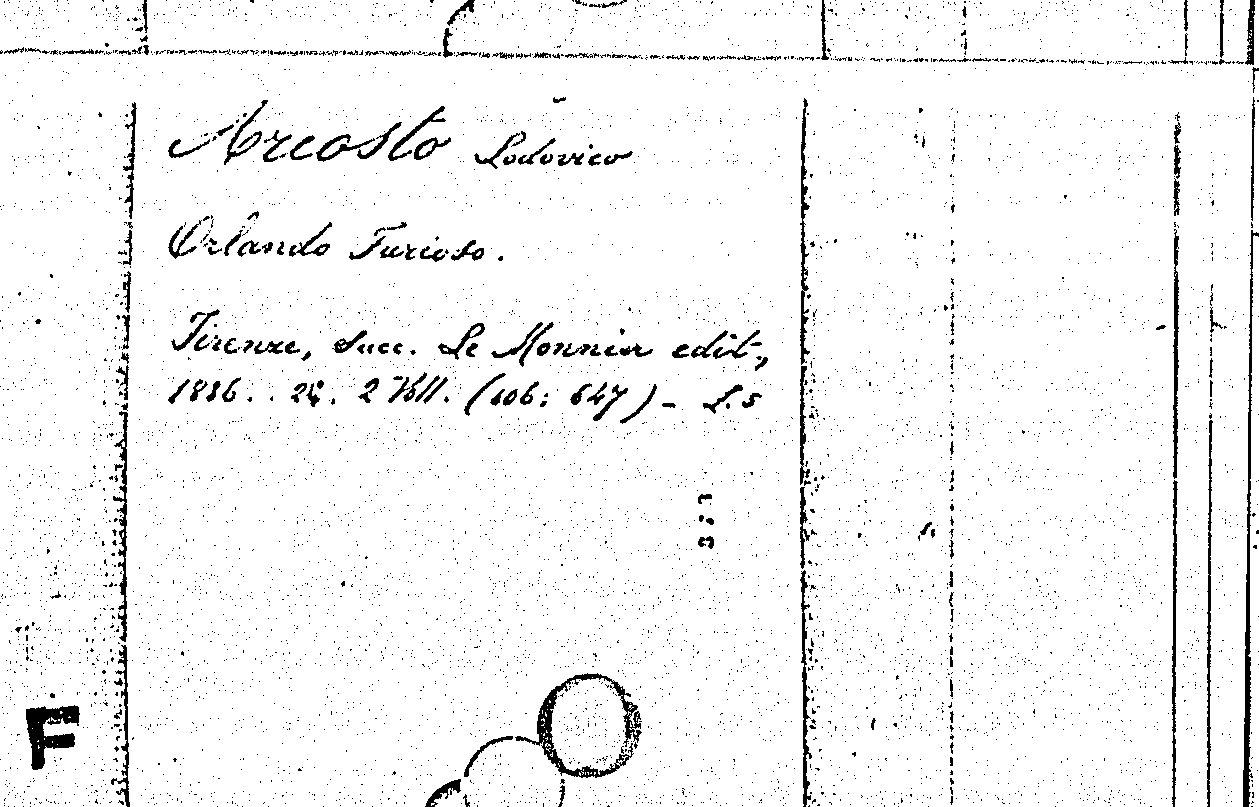 Areosto Lodovico
Orlando Furioso.
Firenze, Succ. Le Monnier edit.,
1886. . 24. 2 Voll. (606: 647) - L. 5
3/1
F